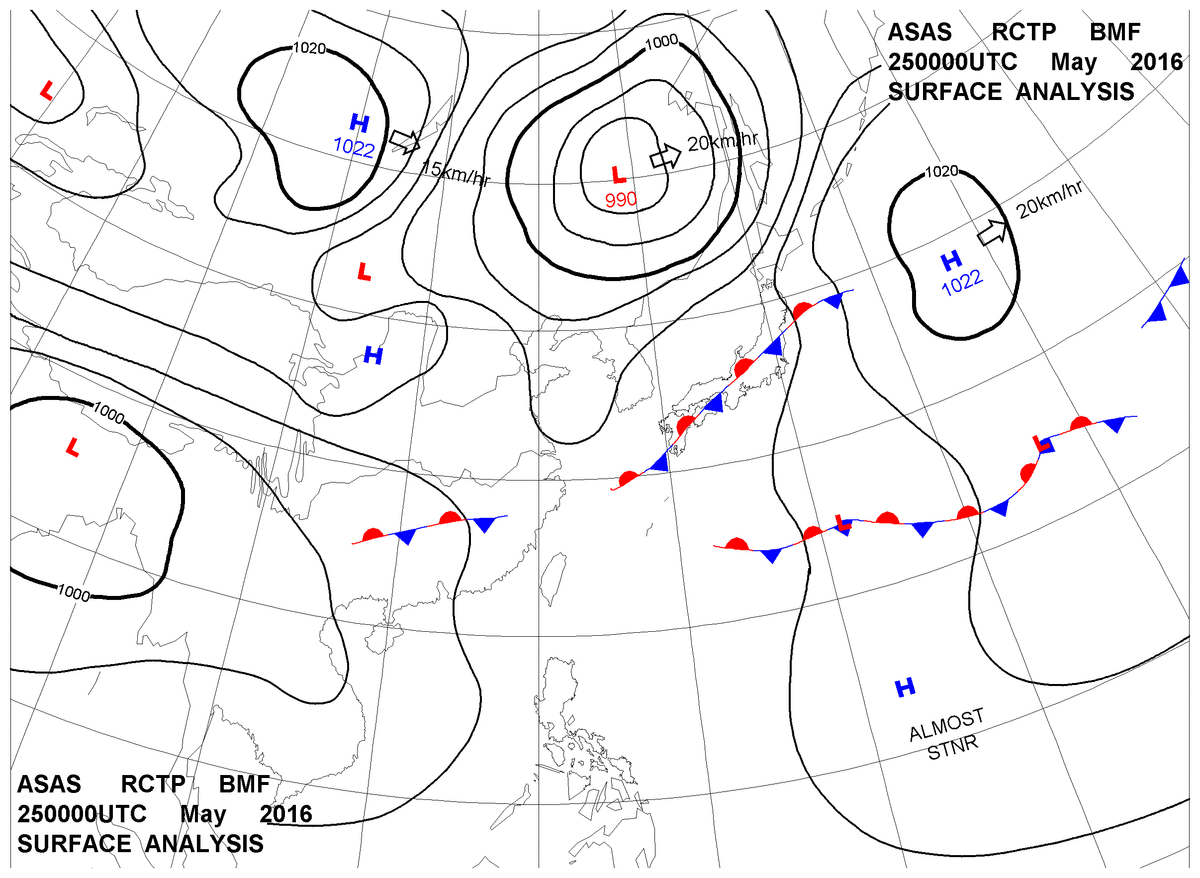 ASAS RCTP BMF
250000UTC May 2016
SURFACE ANALYSIS
1020
1000
L
H
1022
15km/hr
20km/hr
L
990
1020
20km/hr
H
1022
L
H
1000
L
L
L
1000
H
ALMOST
STNR
ASAS RCTP BMF
250000UTC May 2016
SURFACE ANALYSIS